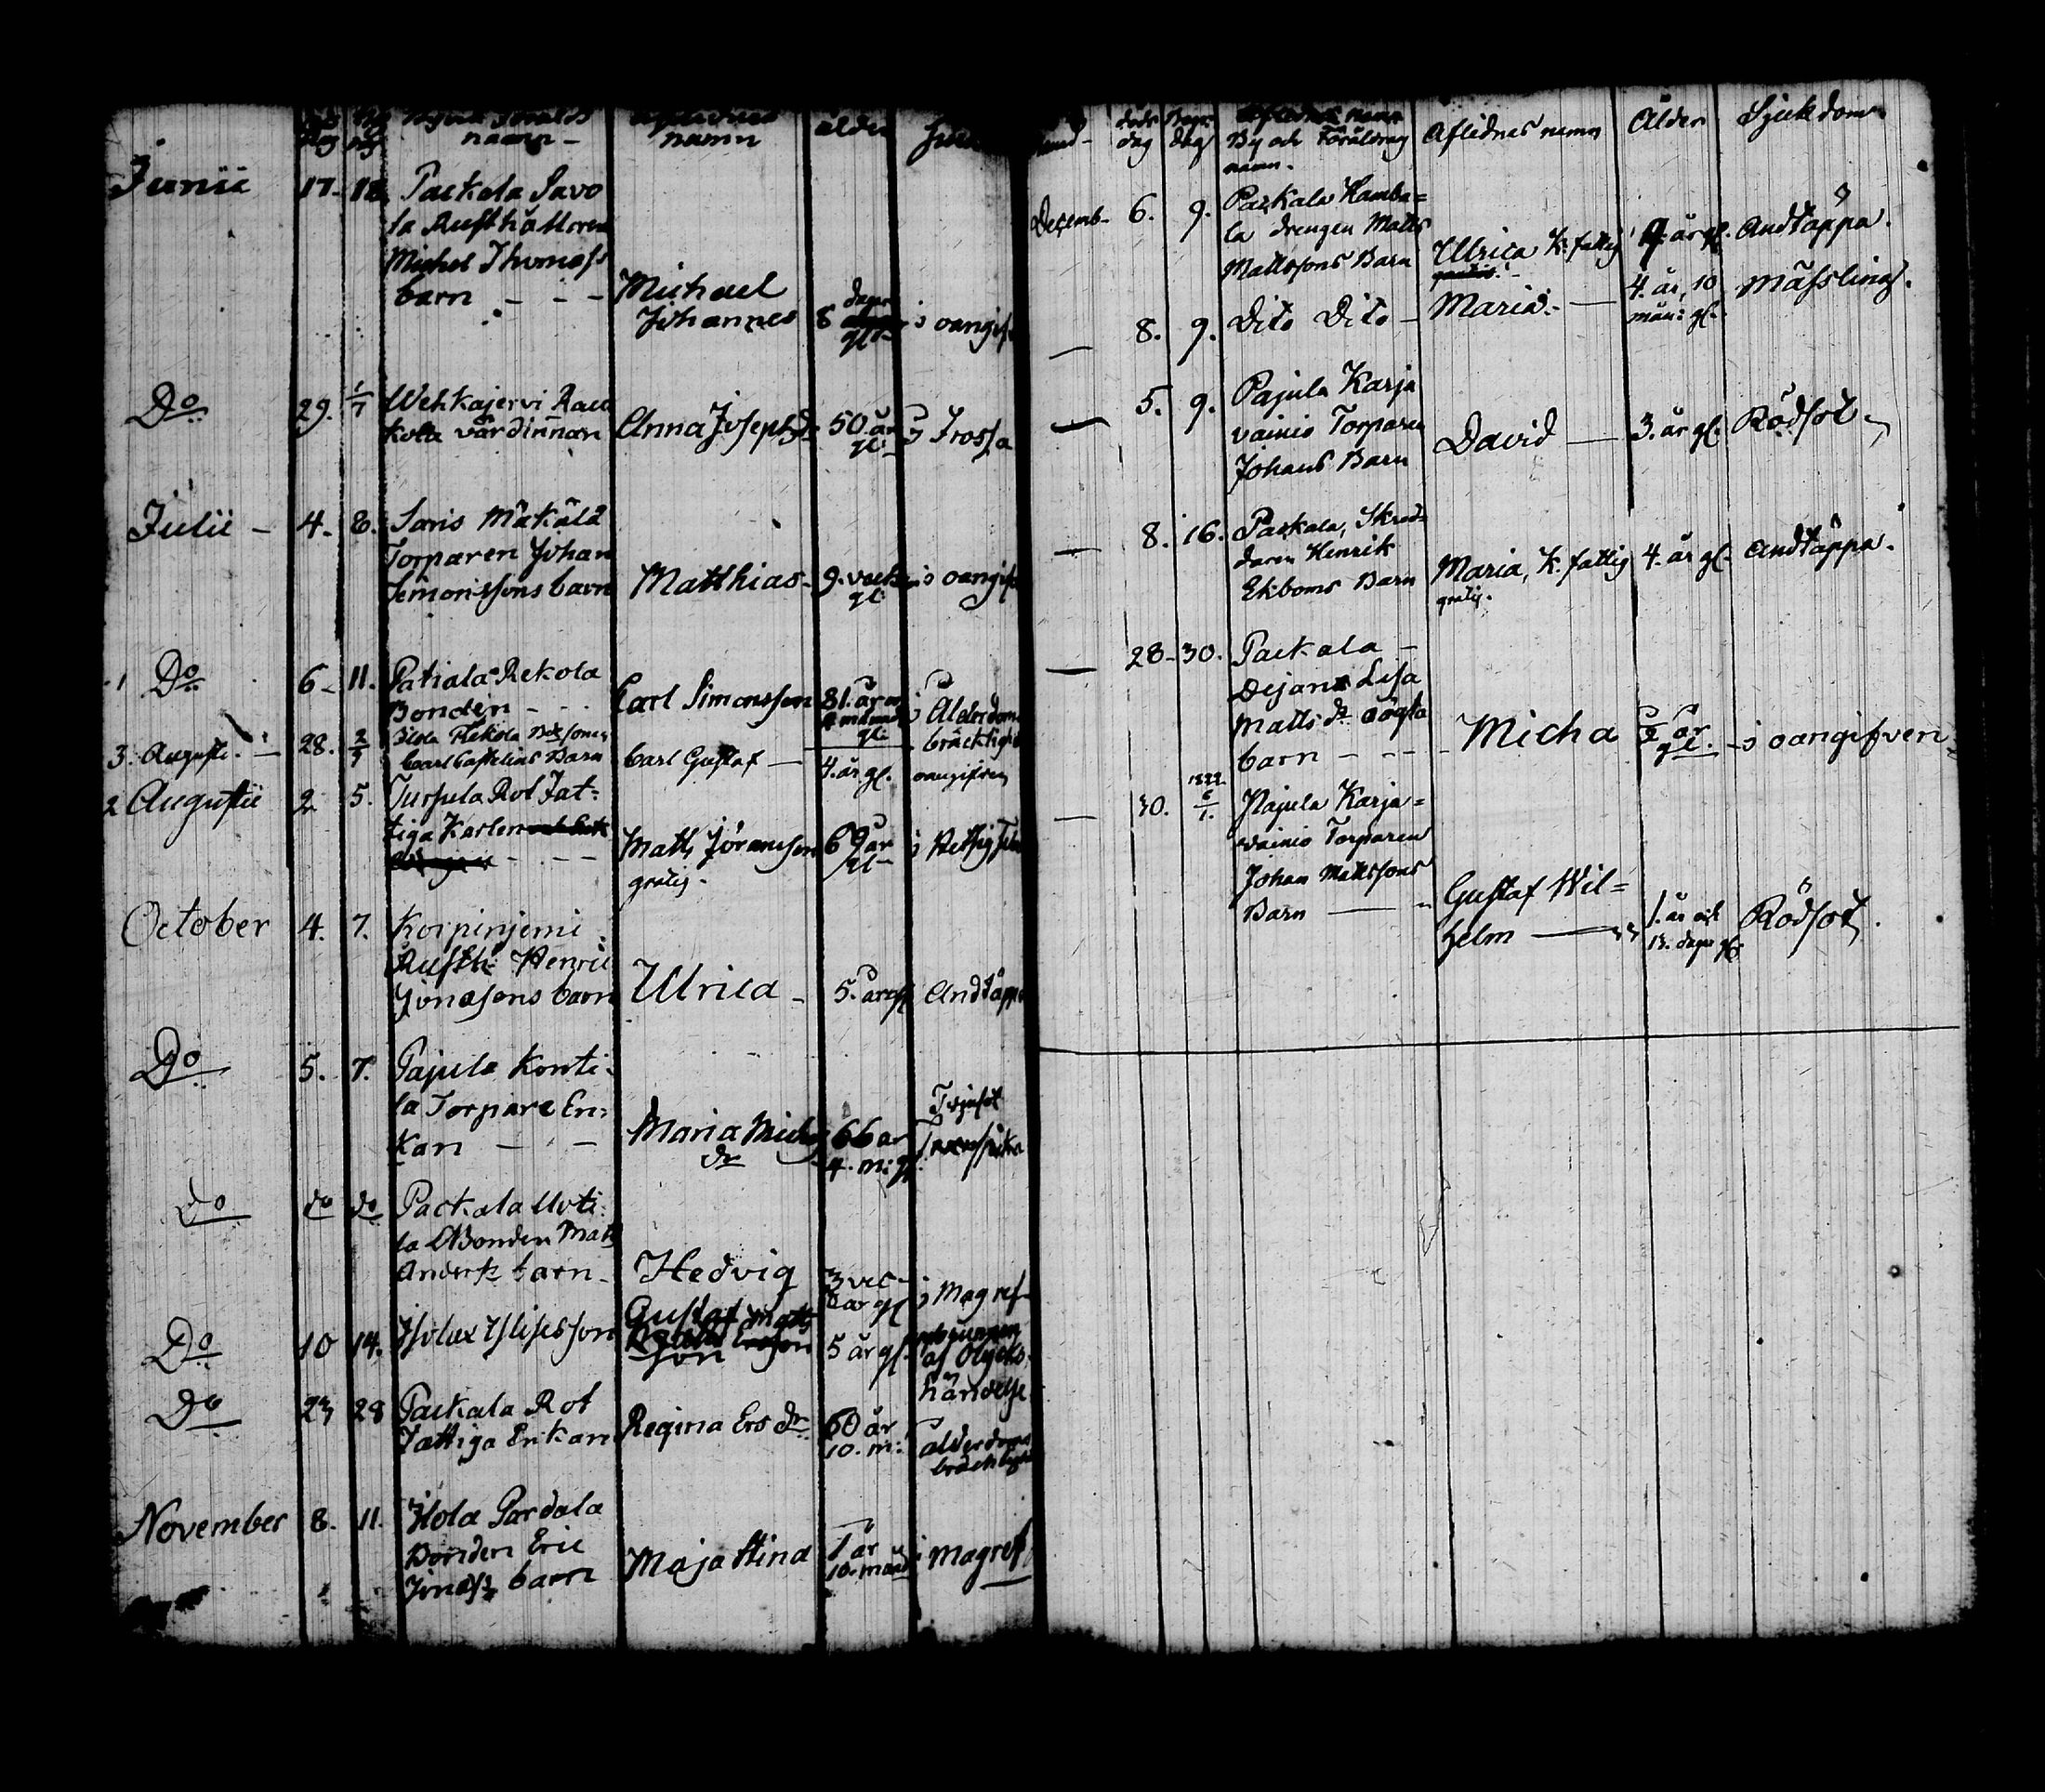 namn -
namn
ålder
Junii 17. 18. Packala Savo
la Rusthållaren
Michel Thomass
barn - - - Michael
Johannes 8 dagar gl. oangif
Do 29. 1/7 Wehkajervi Rau
kola värdinnan Anna Josephsdr 50. år gl. Frossa
Julii - 4. 8. Saris Mäkälä
Torparen Johan
Simonssons barn Matthias - 9. veck gl. oangif
1 Do 6. 11. Patiala Rekola
Bonden - - - Carl Simonsson 81. år Ålderdoms
bräcklighet
3. Augusti. 28. 2/9 Carl Castelins Barn Carl Gustaf - 4. år gl. oangifven
2 Augustii 2 5. Turpula Rot Fat-
tiga Karlen
- - - Matts Jöransson 69 år gl.
gratis.
October 4. 7. Korpinjemi
Rusth: Henric
Jonasons barn Ulrica - 5. år gl. Andtäppa
Do 5. 7. Pajula Konti-
la Torpare En-
kan - - Maria Michs
dr 66 år
4. m: gl.
do do do Packala Uoti-
la Bonden Mats
Anderss barn - Hedvig 3 vec- Magref
Do 10 14. Gustaf Matts
son 5 år gl. af Olycks
händelse
Do 23 28 Packala Rot
Fattiga Enkan Regina Ers dr. 60 år
10. m: ålderdoms
bräcklighet
November 8. 11. Ilola Pardala
Bonden Eric
barn Maja Stina 1 år
10. månad Magref
död
dag Begr.
dag By och Föräldrars
namn. Aflidnes namn Ålder Sjukdom
Decemb. 6. 9. Packala Hamba=
la drengen Matts
Mattssons Barn Ulrica K. fattig år gl. Andtäppa.
8. 9. Dito Dito - Maria. - 4. år, 10
mån: gl. Mässling.
5. 9. Pajula Karja
vainio Torparen
Johans Barn David - 3. år gl. Rödsot
8. 16. Packala, Skred-
daren Henrik
Ekboms Barn Maria, K. fattig 4. år gl. Andtäppa.
gratis.
28. 30. Packala -
Pejan Lisa
Matts dr oägta
barn - - - Micha 1/2 år
gl. - oangifven
30. 1822
6/1. Pajula Karja=
vainio Torparen
Johan Mattssons
Barn - Gustaf Wil=
helm - 1. år och
13. dagar gl. Rödsot.